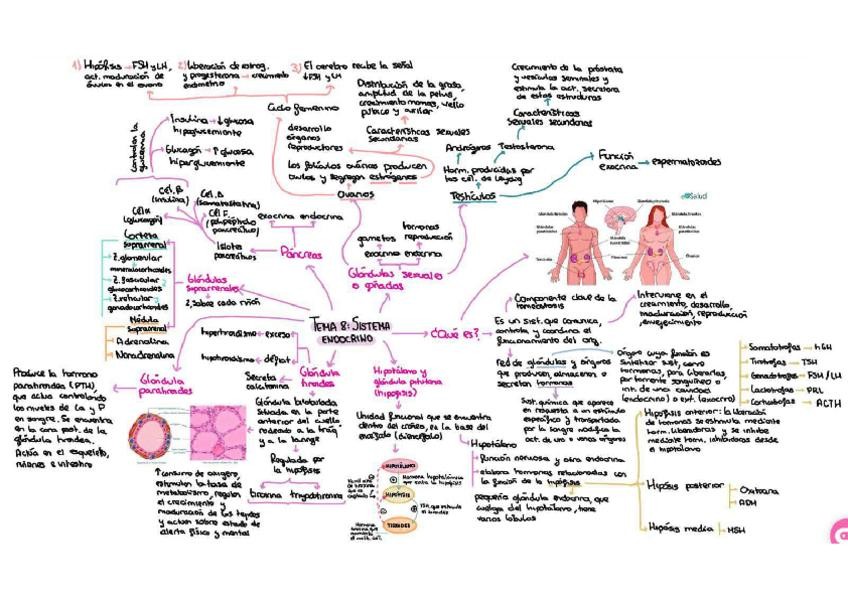 1) Hipófisis → FSH y LH,
act. maduración de
óvulos en el ovario
2) liberación de estrog.
y progesterona → crecimiento
endometrio
3) El cerebro recibe la señal
↓FSH y LH
Ciclo femenino
Distribución de la grasa
amplitud de la pelvis,
crecimiento mamas, vello
púbico y axilar
Características sexuales
secundarias
desarrollo
órganos
reproductores
los folículos ováricos producen
óvulos y segregan estrógenos
Ovarios
Crecimiento de la próstata
y vesículas seminales y
estimula la act. secretora
de estas estructuras
Características
sexuales secundarias
Andrógenos
Testosterona
Horm. producidas por
las cél. de Leydig
Testículos
Función
exocrina → espermatozoides
Controlan la
glucemia
Insulina → ↓glucosa
hipoglucemiante
Glucagón → ↑glucosa
hiperglucemiante
Cél. β
(insulina)
Cél α
(glucagón)
(somatostatina)
Cél F
(polipéptido
pancreático)
Islotes
pancreáticos
exocrina endocrina
Páncreas
hormonas
gametos reproducción
exocrina endocrina
Glándulas sexuales
o gónadas
Corteza
suprarrenal
Z. glomerular
mineralocorticoides
Z. fascicular
glucocorticoides
Z. reticular
gonadocorticoides
Médula
suprarrenal
Adrenalina
Noradrenalina
Glándulas
suprarrenales
2, sobre cada riñón
TEMA 8: SISTEMA
ENDOCRINO
¿Qué es?
Componente clave de la
homeostasis
Es un sist. que comunica,
controla y coordina el
funcionamiento del org.
Interviene en el
crecimiento, desarrollo,
maduración, reproducción
, envejecimiento
red de glándulas y órganos
que producen, almacenan o
secretan hormonas
Órgano cuya función es
sintetizar sust, como
hormonas, para liberarlas,
por torrente sanguíneo o
int. de una cavidad
(endocrino) o ext. (exocrino)
Sust. química que aparece
en respuesta a un estímulo
específico y transportada
por la sangre modifica la
act. de uno o varios órganos
Somatotrofas → hGH
Tirotrofas → TSH
Gonadotrofas → FSH/LH
Lactotrofas → PRL
Corticotrofas → ACTH
Hipófisis anterior: la liberación
de hormonas se estimula mediante
horm. liberadoras y se inhibe
mediante horm. inhibidoras desde
el hipotálamo
Hipófisis posterior
Oxitocina
ADH
Hipófisis media → MSH
Hipotálamo
función nerviosa y otra endocrina
elabora hormonas relacionadas con
la función de la hipófisis
pequeña glándula endocrina, que
cuelga del hipotálamo, tiene
varios lóbulos
Hipotálamo y
glándula pituitaria
(hipófisis)
Unidad funcional que se encuentra
dentro del cráneo, en la base del
encéfalo (diencéfalo)
HIPOTÁLAMO
HIPÓFISIS
TIROIDES
hipertiroidismo ← exceso
hipotiroidismo ← déficit
Glándula
tiroides
Secreta
calcitonina
Glándula bilobulada
situada en la parte
anterior del cuello
rodeando a la tráq
y a la laringe
Regulada por
la hipófisis
tiroxina triyodotironina
↑ consumo de oxígeno,
estimulan la tasa de
metabolismo, regulan
el crecimiento y
maduración de los tejidos
y actúan sobre estado de
alerta física y mental
Glándula
paratiroides
Produce la hormona
paratiroidea (PTH),
que actúa controlando
los niveles de Ca y P
en sangre. Se encuentra
en la cara post. de la
glándula tiroidea.
Actúa en el esqueleto,
riñones e intestino
Salud